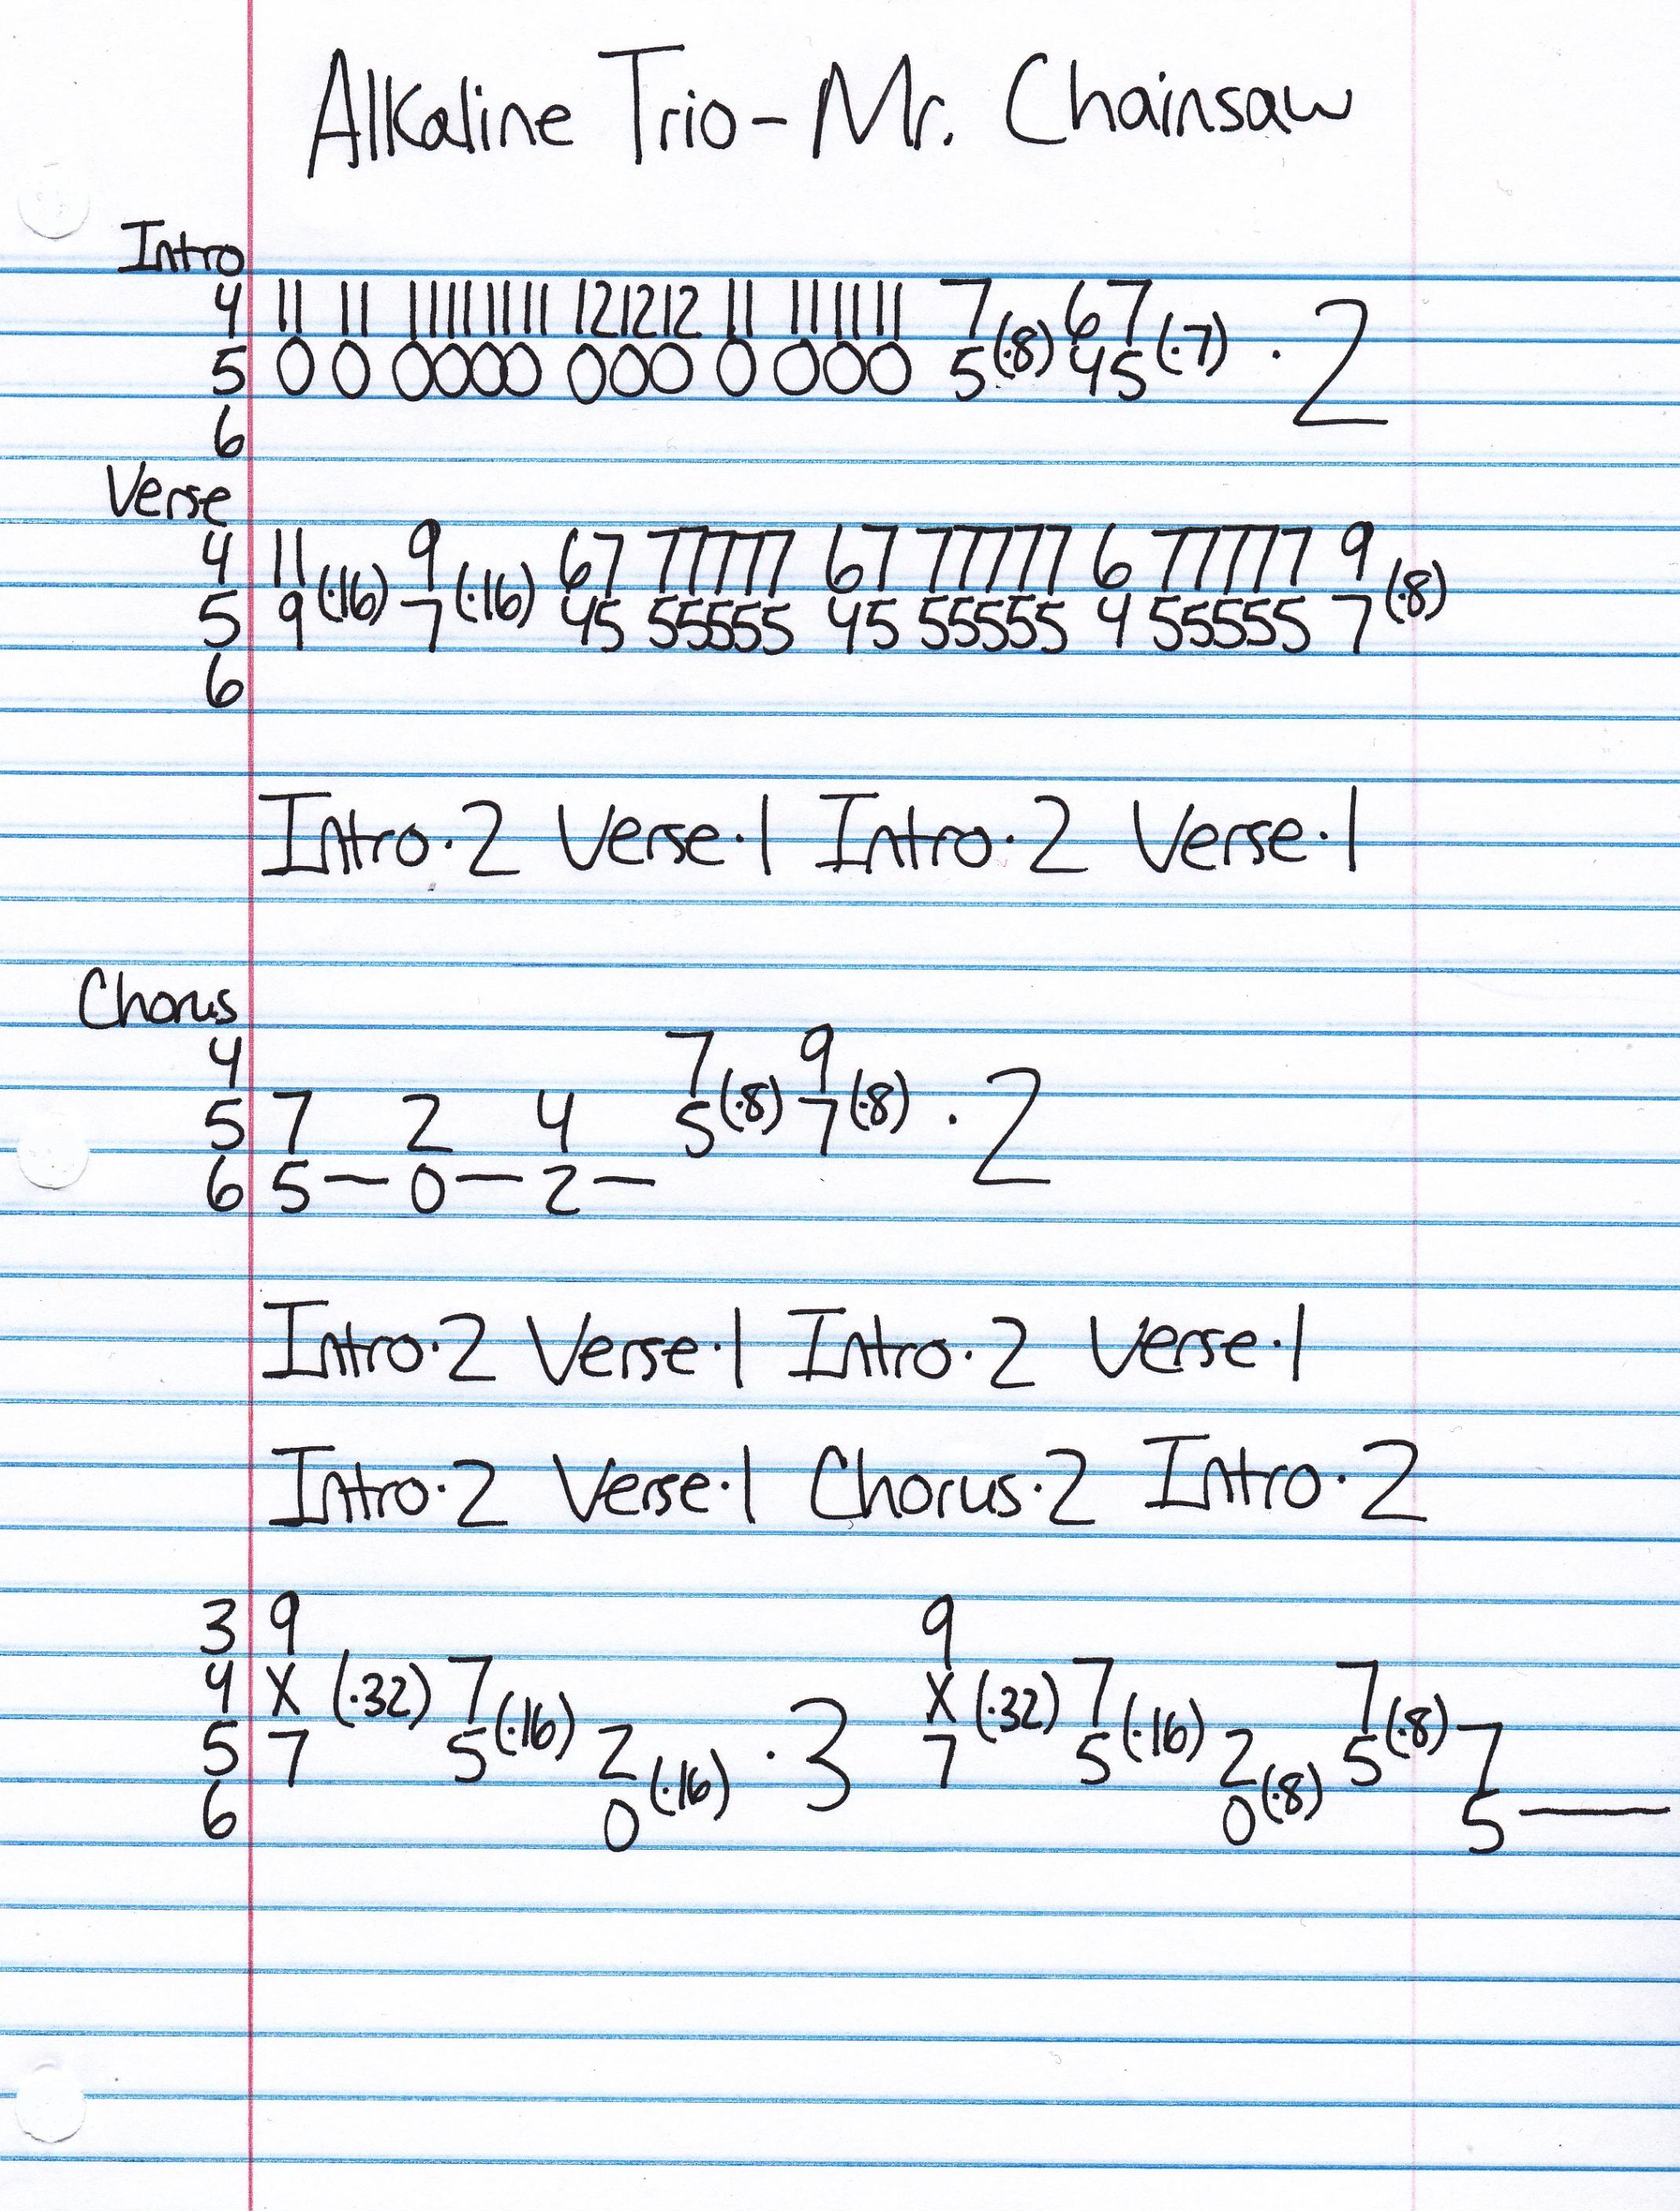 Alkaline Trio - Mr. Chainsaw
Intro
4 11 11 11111111 121212 11 111111 7 67
5 0 0 0000 000 0 000 5(·8) 45(·7) · 2
6
Verse
4 11 9 67 77777 67 77777 6 77777 9
5 9(·16) 7(·16) 45 55555 45 55555 4 55555 7(·8)
6
Intro·2 Verse·1 Intro·2 Verse·1
Chorus
4 7 9
5 7 2 4 5(·8) 7(·8) · 2
6 5— 0— 2—
Intro·2 Verse·1 Intro·2 Verse·1
Intro·2 Verse·1 Chorus·2 Intro·2
3 9 9
4 X (·32) 7 X (·32) 7 7
5 7 5(·16) 2 · 3 7 5(·16) 2 5(·8) 7
6 0(·16) 0(·8) 5—